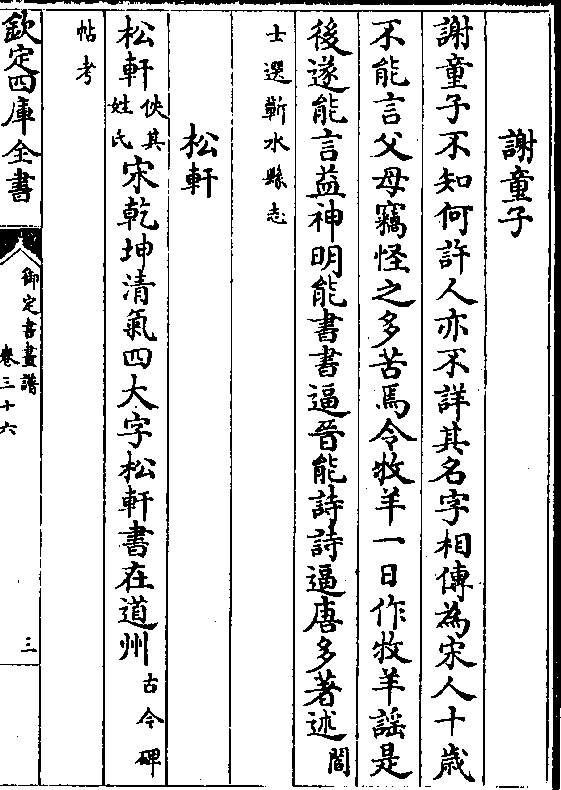 謝童子
謝童子不知何許人亦不詳其名字相傳為宋人十歳
不能言父母竊怪之多苦焉令牧羊一日作牧羊謡是
後遂能言益神明能書書逼晉能詩詩逼唐多著述閻
士選蘄水縣志
松軒
松軒佚其姓氏宋乾坤清氣四大字松軒書在道州古今碑
帖考
欽定四庫全書
御定書畫譜
卷三十六
三